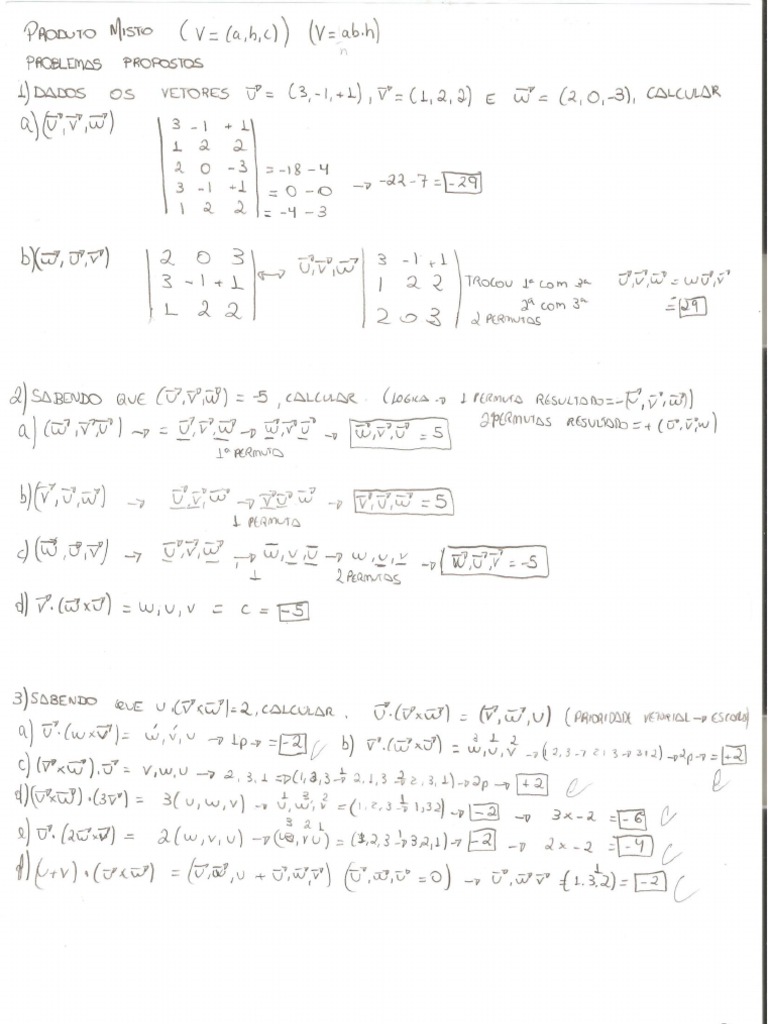 PRODUTO MISTO (V = (a,b,c)) (V = ab.h)
PROBLEMAS PROPOSTOS
1) DADOS OS VETORES U⃗ = (3,-1,+1), V⃗ = (1,2,2) E W⃗ = (2,0,-3), CALCULAR
a) (U⃗,V⃗,W⃗)
3 -1 +1
1 2 2
2 0 -3 = -18 -4
3 -1 +1 = 0 -0 → -22 -7 = -29
1 2 2 = -4 -3
b) (W⃗,U⃗,V⃗)
2 0 3 3 -1 +1
3 -1 +1 ↔ U⃗,V⃗,W⃗ 1 2 2 TROCOU 1ª COM 3ª U⃗,V⃗,W⃗ = W U⃗,V⃗
1 2 2 2 0 3 2ª COM 3ª = 29
2 PERMUTAS
2) SABENDO QUE (U⃗,V⃗,W⃗) = -5, CALCULAR. (LOGICA → 1 PERMUTA RESULTADO = -(U⃗,V⃗,W⃗))
2 PERMUTAS RESULTADO = + (U⃗,V⃗,W)
a) (W⃗,V⃗,U⃗) → = U⃗,V⃗,W⃗ → W⃗,V⃗,U⃗ → W⃗,V⃗,U⃗ = 5
1ª PERMUTA
b) (V⃗,U⃗,W⃗) → U⃗,V⃗,W⃗ → V⃗ U⃗ W⃗ → V⃗,U⃗,W⃗ = 5
1 PERMUTA
c) (W⃗,U⃗,V⃗) → U⃗,V⃗,W⃗ → W,V,U → W,U,V → W⃗,U⃗,V⃗ = -5
1 2 PERMUTAS
d) V⃗.(W⃗xU⃗) = W,U,V = C = -5
3) SABENDO QUE U.(V⃗xW⃗) = 2, CALCULAR. U⃗.(V⃗xW⃗) = (V⃗,W⃗,U) (PRIORIDADE VETORIAL → ESCALAR)
a) U⃗.(WxV⃗) = W,V,U → 1P → = -2 C b) V⃗.(W⃗xU⃗) = W,U,V → 2P → = +2
c) (V⃗xW⃗).U⃗ = V,W,U → 2,3,1 → 2P → +2 C
d) (V⃗xW⃗).(3V⃗) = 3(U,W,V) → U⃗,W⃗,V⃗ = (1,2,3 → 1,3,2) → -2 → 3x-2 = -6 C
e) U⃗.(2W⃗xV⃗) = 2(W,V,U) → (W,V,U) = (1,2,3 → 3,2,1) → -2 → 2x-2 = -4 C
f) (U+V).(U⃗xW⃗) = (U⃗,W⃗,U + U⃗,W⃗,V⃗) (U⃗,W⃗,U⃗ = 0) → U⃗,W⃗ V⃗ = (1.3.2) = -2 C